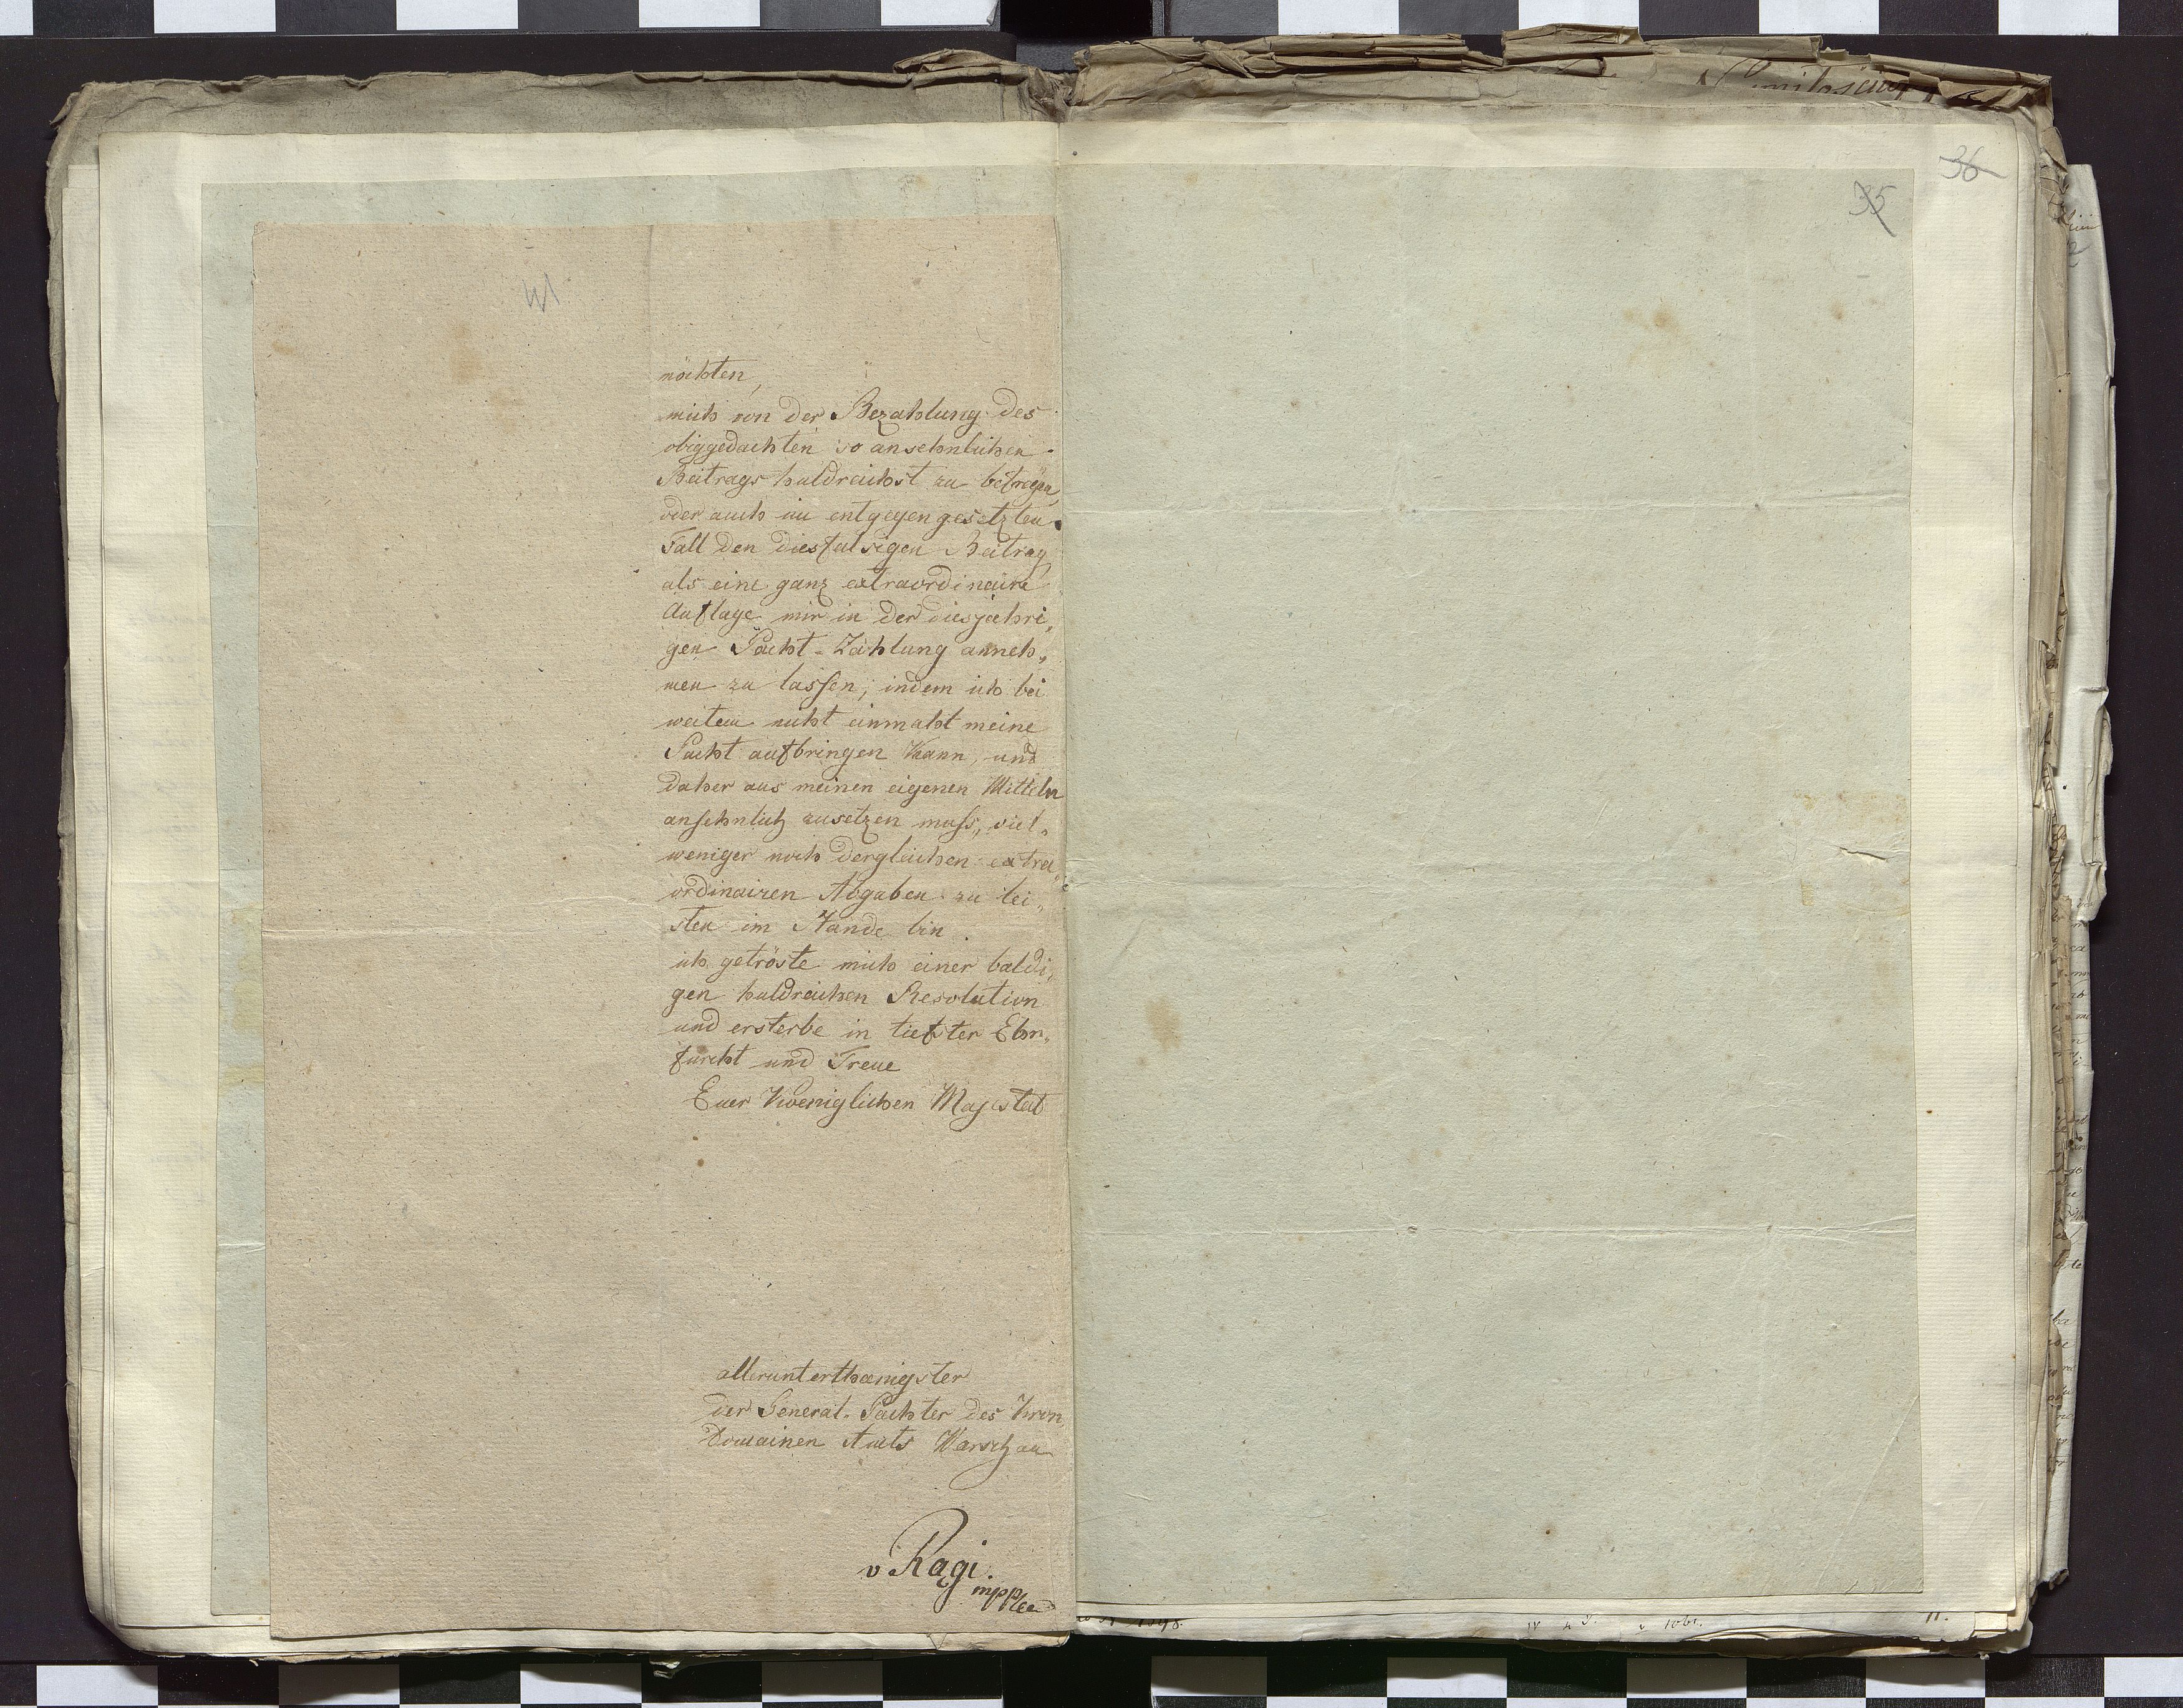 möchten,
mich von der Bezahlung des
obiggedachten so ansehnlichen
Beitrags huldreichst zu befreyen,
oder auch im entgegengesetzten
Fall den diesfalsigen Beitrag
als eine ganz extraordinaire
Auflage mir in der diesjahri„
gen Pacht-Zahlung anneh„
men zu lassen; indem ich bei
weitem nicht einmaht meine
Pacht aufbringen kann, und
daher aus meinen eigenen Mitteln
ansehnlich zusetzen muss, viel„
weniger noch dergleichen extra„
ordinairen Abgaben zu lei„
sten im Stande bin.
ich getröste mich einer baldi„
gen huldreichen Resolution
und ersterbe in tiefster Ehr„
furcht und Treue
Euer Koeniglichen Majestat
allerunterthaenigster
der General-Pachter des Kron
Domainen Amts Warschau
v Ragi.
mppia
36
35